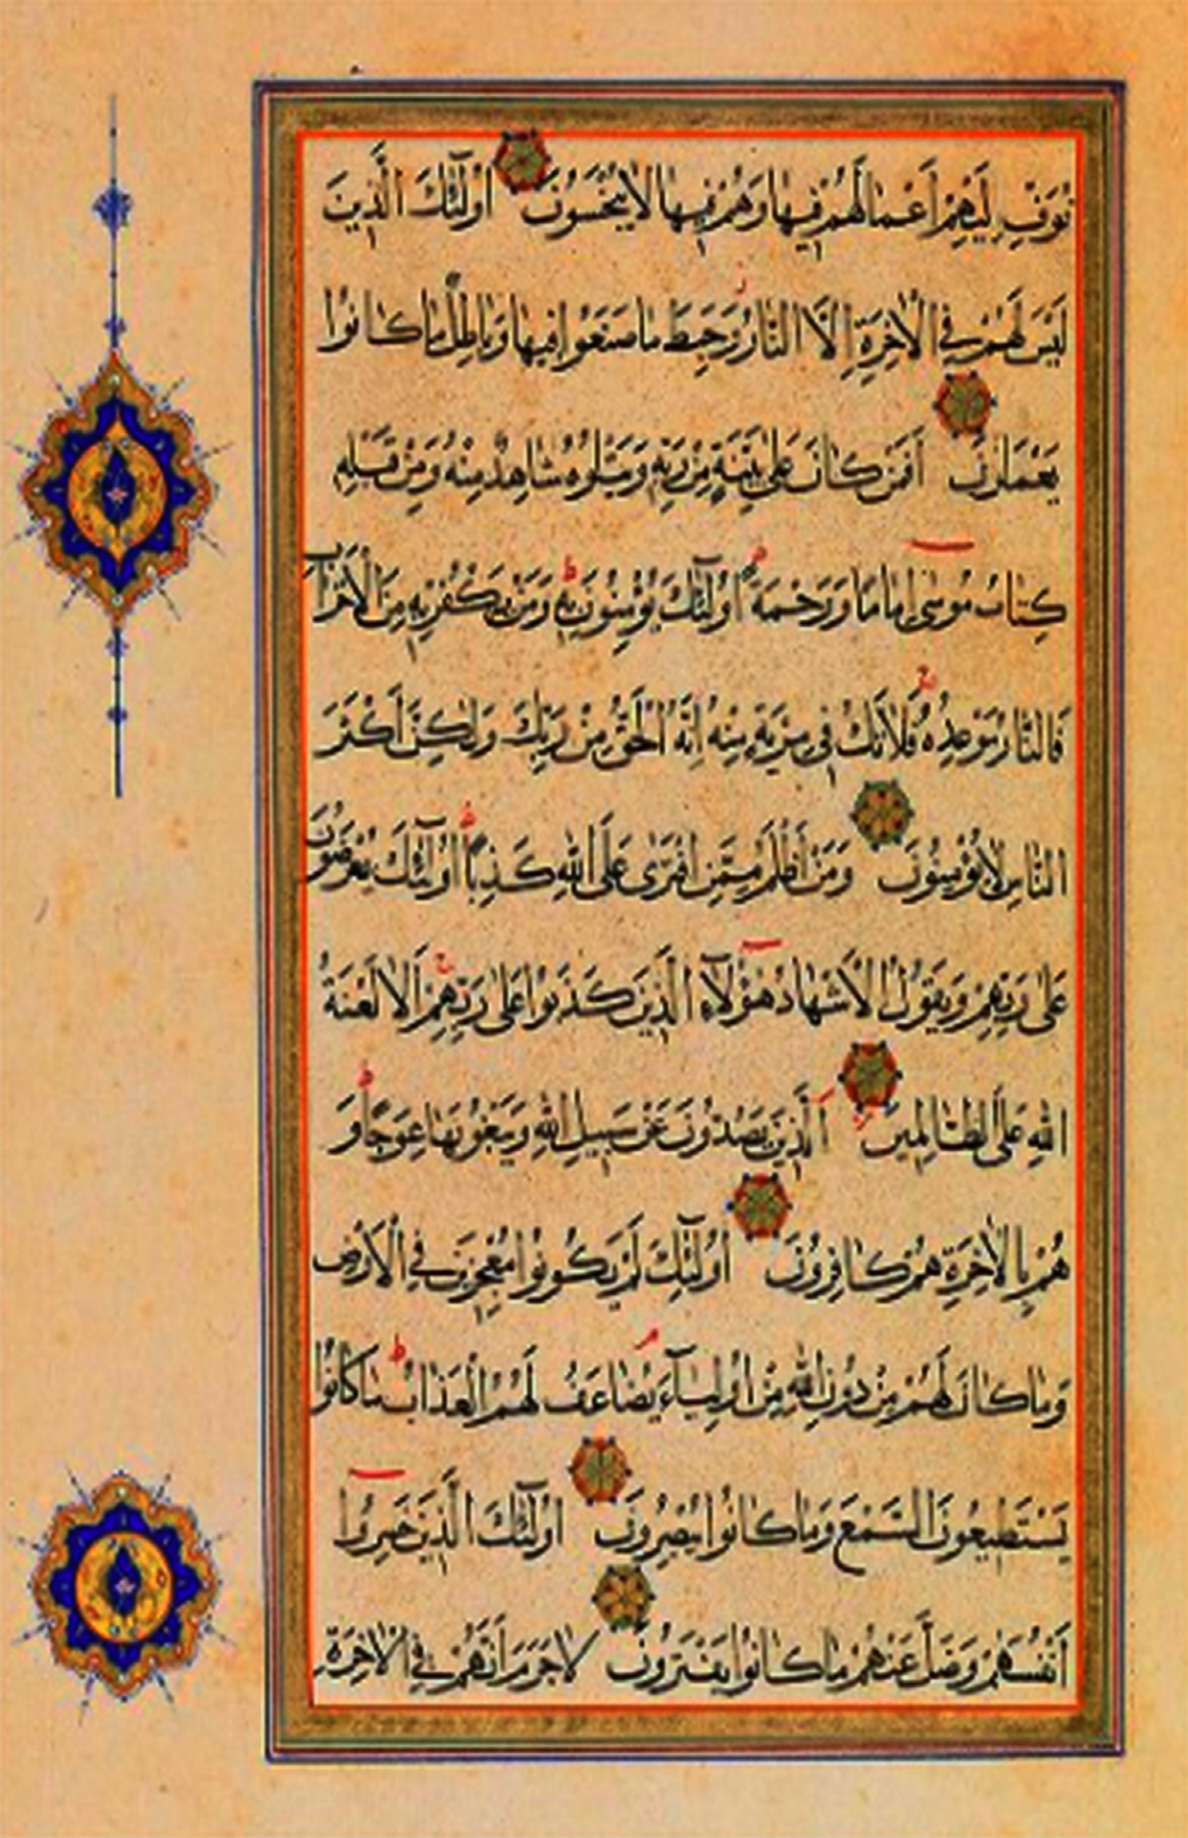 نُوَفِّ إِلَيْهِمْ أَعْمَالَهُمْ فِيهَا وَهُمْ فِيهَا لَا يُبْخَسُونَ أُولَٰئِكَ الَّذِينَ
لَيْسَ لَهُمْ فِي الْآخِرَةِ إِلَّا النَّارُ وَحَبِطَ مَا صَنَعُوا فِيهَا وَبَاطِلٌ مَا كَانُوا
يَعْمَلُونَ أَفَمَنْ كَانَ عَلَىٰ بَيِّنَةٍ مِنْ رَبِّهِ وَيَتْلُوهُ شَاهِدٌ مِنْهُ وَمِنْ قَبْلِهِ
كِتَابُ مُوسَىٰ إِمَامًا وَرَحْمَةً أُولَٰئِكَ يُؤْمِنُونَ بِهِ وَمَنْ يَكْفُرْ بِهِ مِنَ الْأَحْزَابِ
فَالنَّارُ مَوْعِدُهُ فَلَا تَكُ فِي مِرْيَةٍ مِنْهُ إِنَّهُ الْحَقُّ مِنْ رَبِّكَ وَلَٰكِنَّ أَكْثَرَ
النَّاسِ لَا يُؤْمِنُونَ وَمَنْ أَظْلَمُ مِمَّنِ افْتَرَىٰ عَلَى اللَّهِ كَذِبًا أُولَٰئِكَ يُعْرَضُونَ
عَلَىٰ رَبِّهِمْ وَيَقُولُ الْأَشْهَادُ هَٰؤُلَاءِ الَّذِينَ كَذَبُوا عَلَىٰ رَبِّهِمْ أَلَا لَعْنَةُ
اللَّهِ عَلَى الظَّالِمِينَ الَّذِينَ يَصُدُّونَ عَنْ سَبِيلِ اللَّهِ وَيَبْغُونَهَا عِوَجًا وَ
هُمْ بِالْآخِرَةِ هُمْ كَافِرُونَ أُولَٰئِكَ لَمْ يَكُونُوا مُعْجِزِينَ فِي الْأَرْضِ
وَمَا كَانَ لَهُمْ مِنْ دُونِ اللَّهِ مِنْ أَوْلِيَاءَ يُضَاعَفُ لَهُمُ الْعَذَابُ مَا كَانُوا
يَسْتَطِيعُونَ السَّمْعَ وَمَا كَانُوا يُبْصِرُونَ أُولَٰئِكَ الَّذِينَ خَسِرُوا
أَنْفُسَهُمْ وَضَلَّ عَنْهُمْ مَا كَانُوا يَفْتَرُونَ لَا جَرَمَ أَنَّهُمْ فِي الْآخِرَةِ